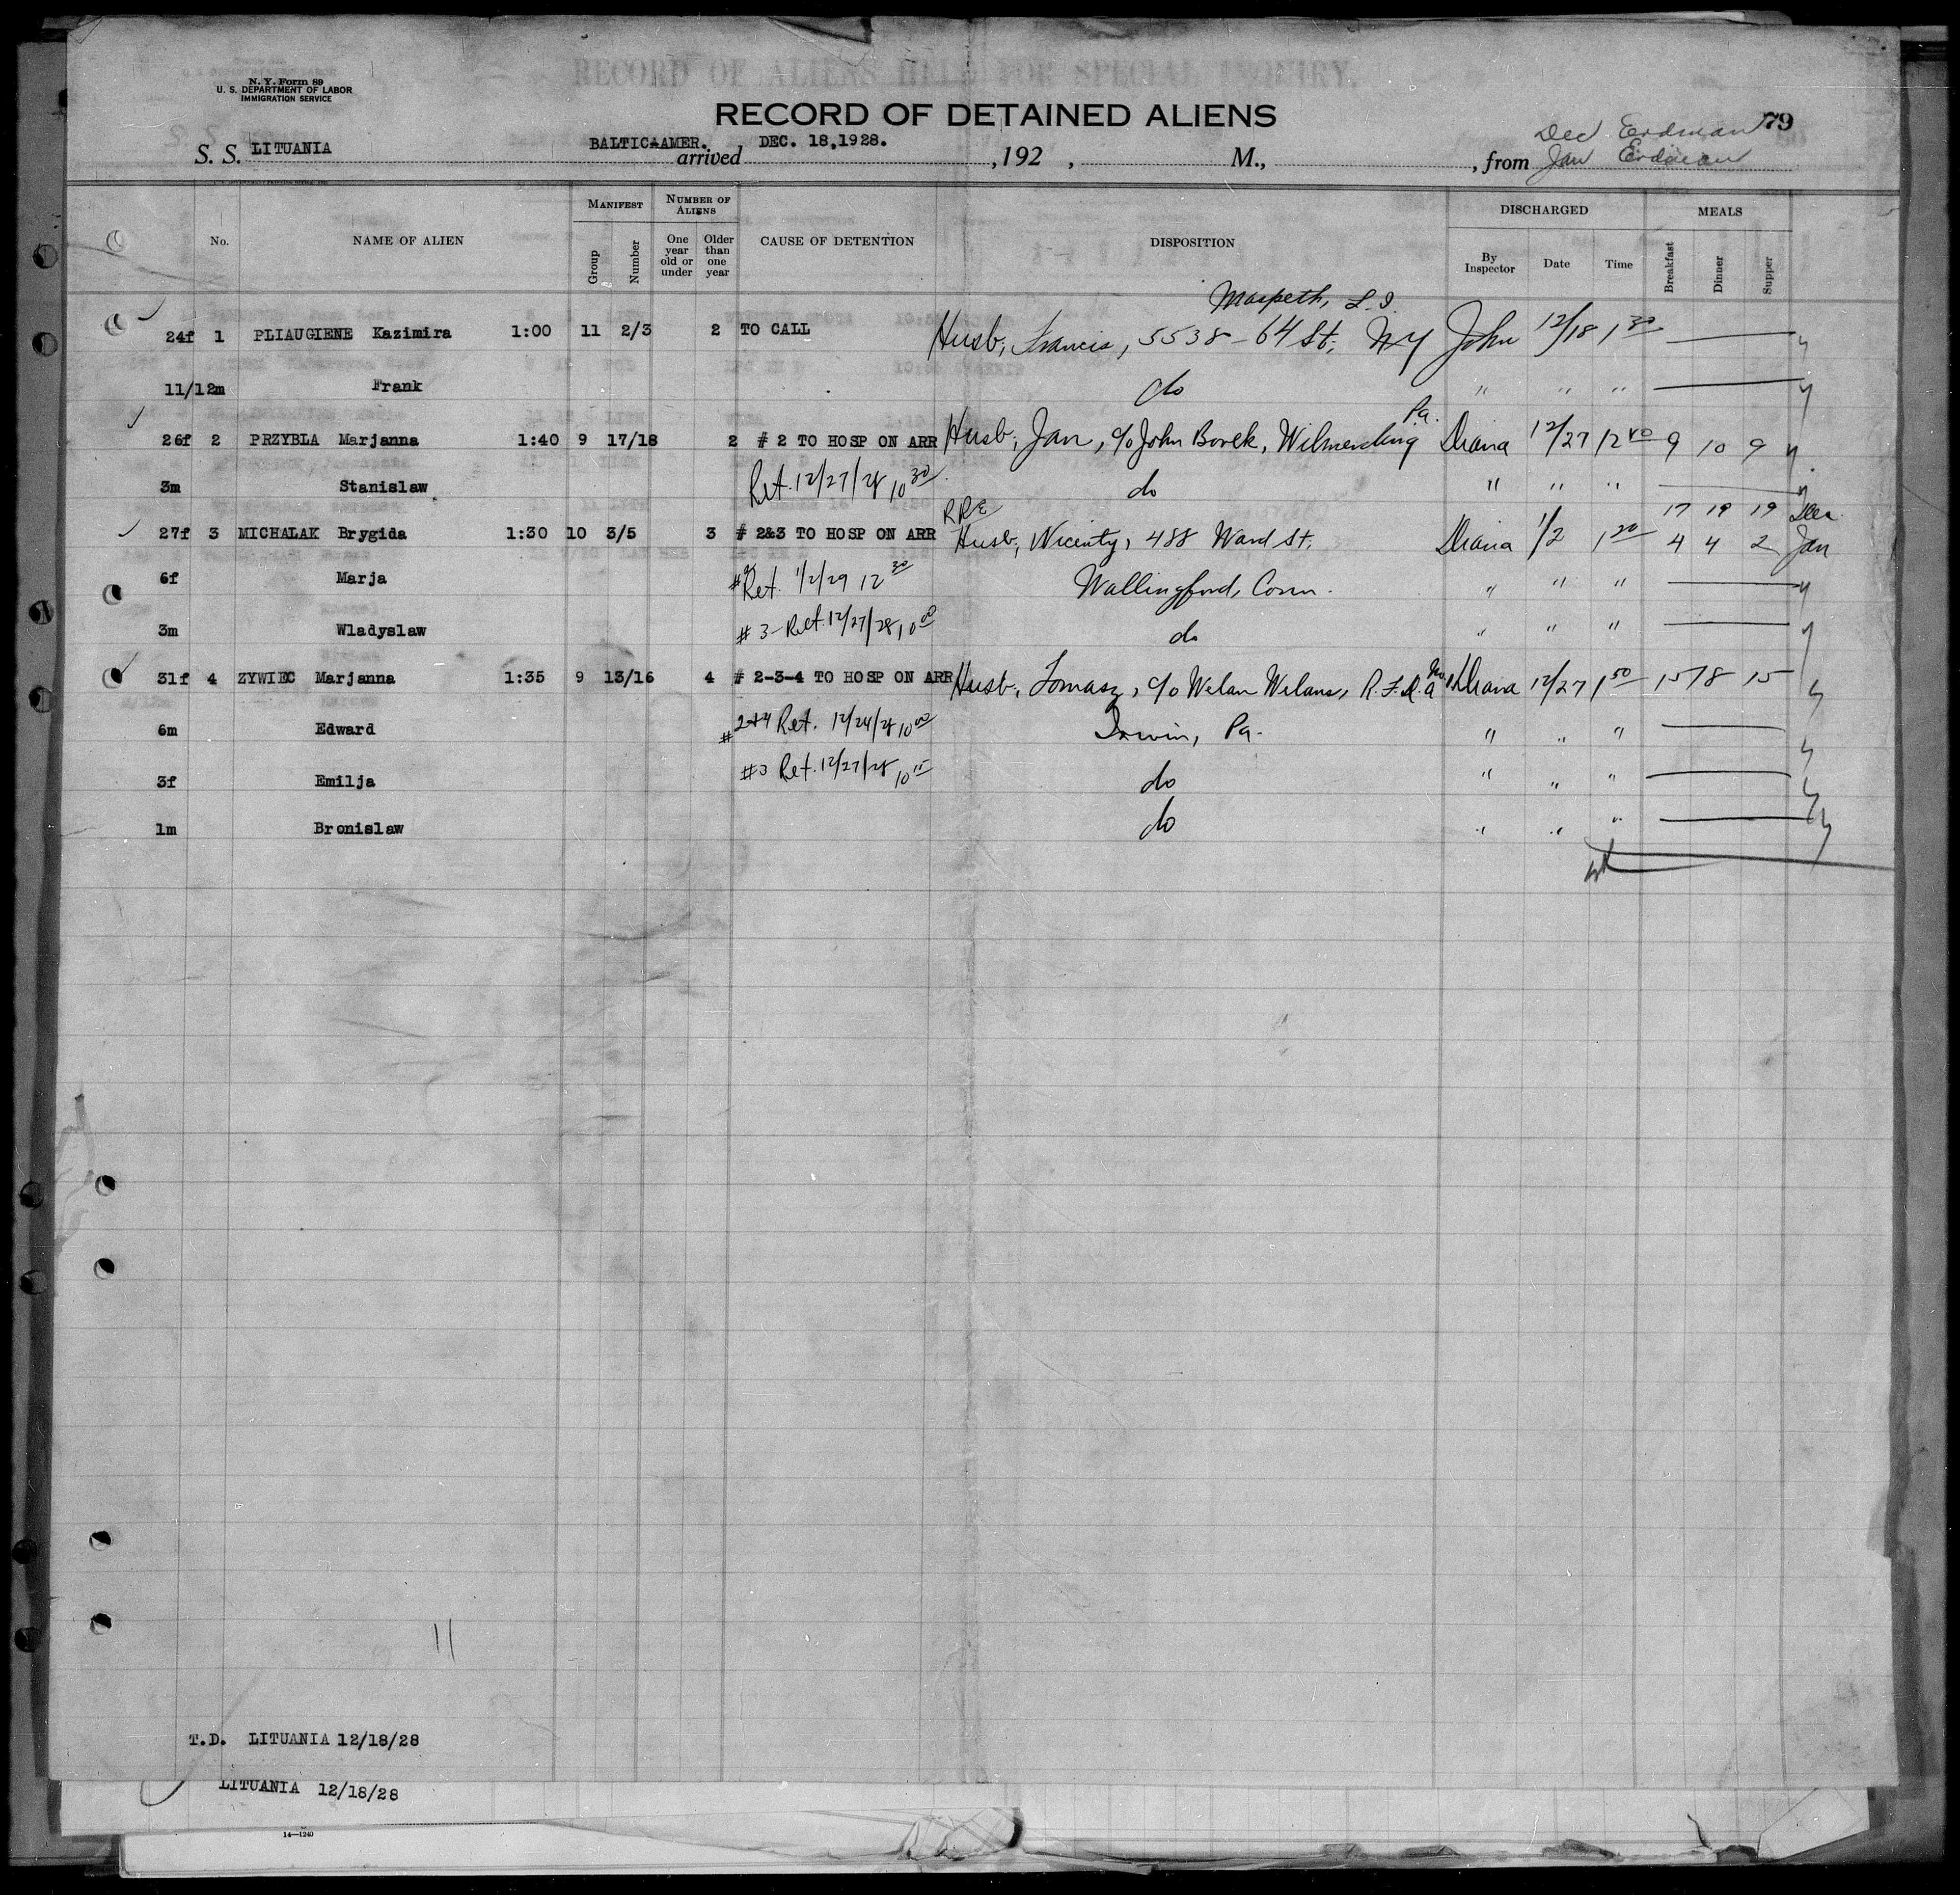 N. Y. Form 89
U. S. DEPARTMENT OF LABOR
IMMIGRATION SERVICE
RECORD OF ALIENS HELD FOR SPECIAL INQUIRY.
RECORD OF DETAINED ALIENS
79
Dec Erdman
S. S. LITUANIA BALTIC-AMER. arrived DEC. 18, 1928. , 192 , M., , from Jan Erdman
MANIFEST NUMBER OF ALIENS DISCHARGED MEALS
No. NAME OF ALIEN Group Number One year old or under Older than one year CAUSE OF DETENTION DISPOSITION By Inspector Date Time Breakfast Dinner Supper
Maspeth, L.I.
24f 1 PLIAUGIENE Kazimira 1:00 11 2/3 2 TO CALL Husb, Francis, 5538-64 St, NY John 12/18 1 30
11/12m Frank do " " "
Pa.
26f 2 PRZYBLA Marjanna 1:40 9 17/18 2 # 2 TO HOSP ON ARR Husb, Jan, c/o John Borek, Wilmerding Diana 12/27 12 40 9 10 9
3m Stanislaw Ret. 12/27/28 10 30 do " " "
RRE 17 19 19 Dec
27f 3 MICHALAK Brygida 1:30 10 3/5 3 # 2&3 TO HOSP ON ARR Husb, Wicenty, 488 Ward St, Diana 1/2 1 20 4 4 2 Jan
6f Marja #2 Ret. 1/2/29 12 30 Wallingford, Conn. " " "
3m Wladyslaw # 3- Ret. 12/27/28, 10 00 do " " "
31f 4 ZYWIEC Marjanna 1:35 9 13/16 4 # 2-3-4 TO HOSP ON ARR Husb, Tomasz, c/o Welan Welans, R.F.D. No. 1 Diana 12/27 1 50 15 18 15
6m Edward # 2+4 Ret. 12/24/28 10 00 Irwin, Pa. " " "
3f Emilja #3 Ret. 12/27/28 10 15 do " " "
1m Bronislaw do " " "
11
T.D. LITUANIA 12/18/28
LITUANIA 12/18/28
14—1240